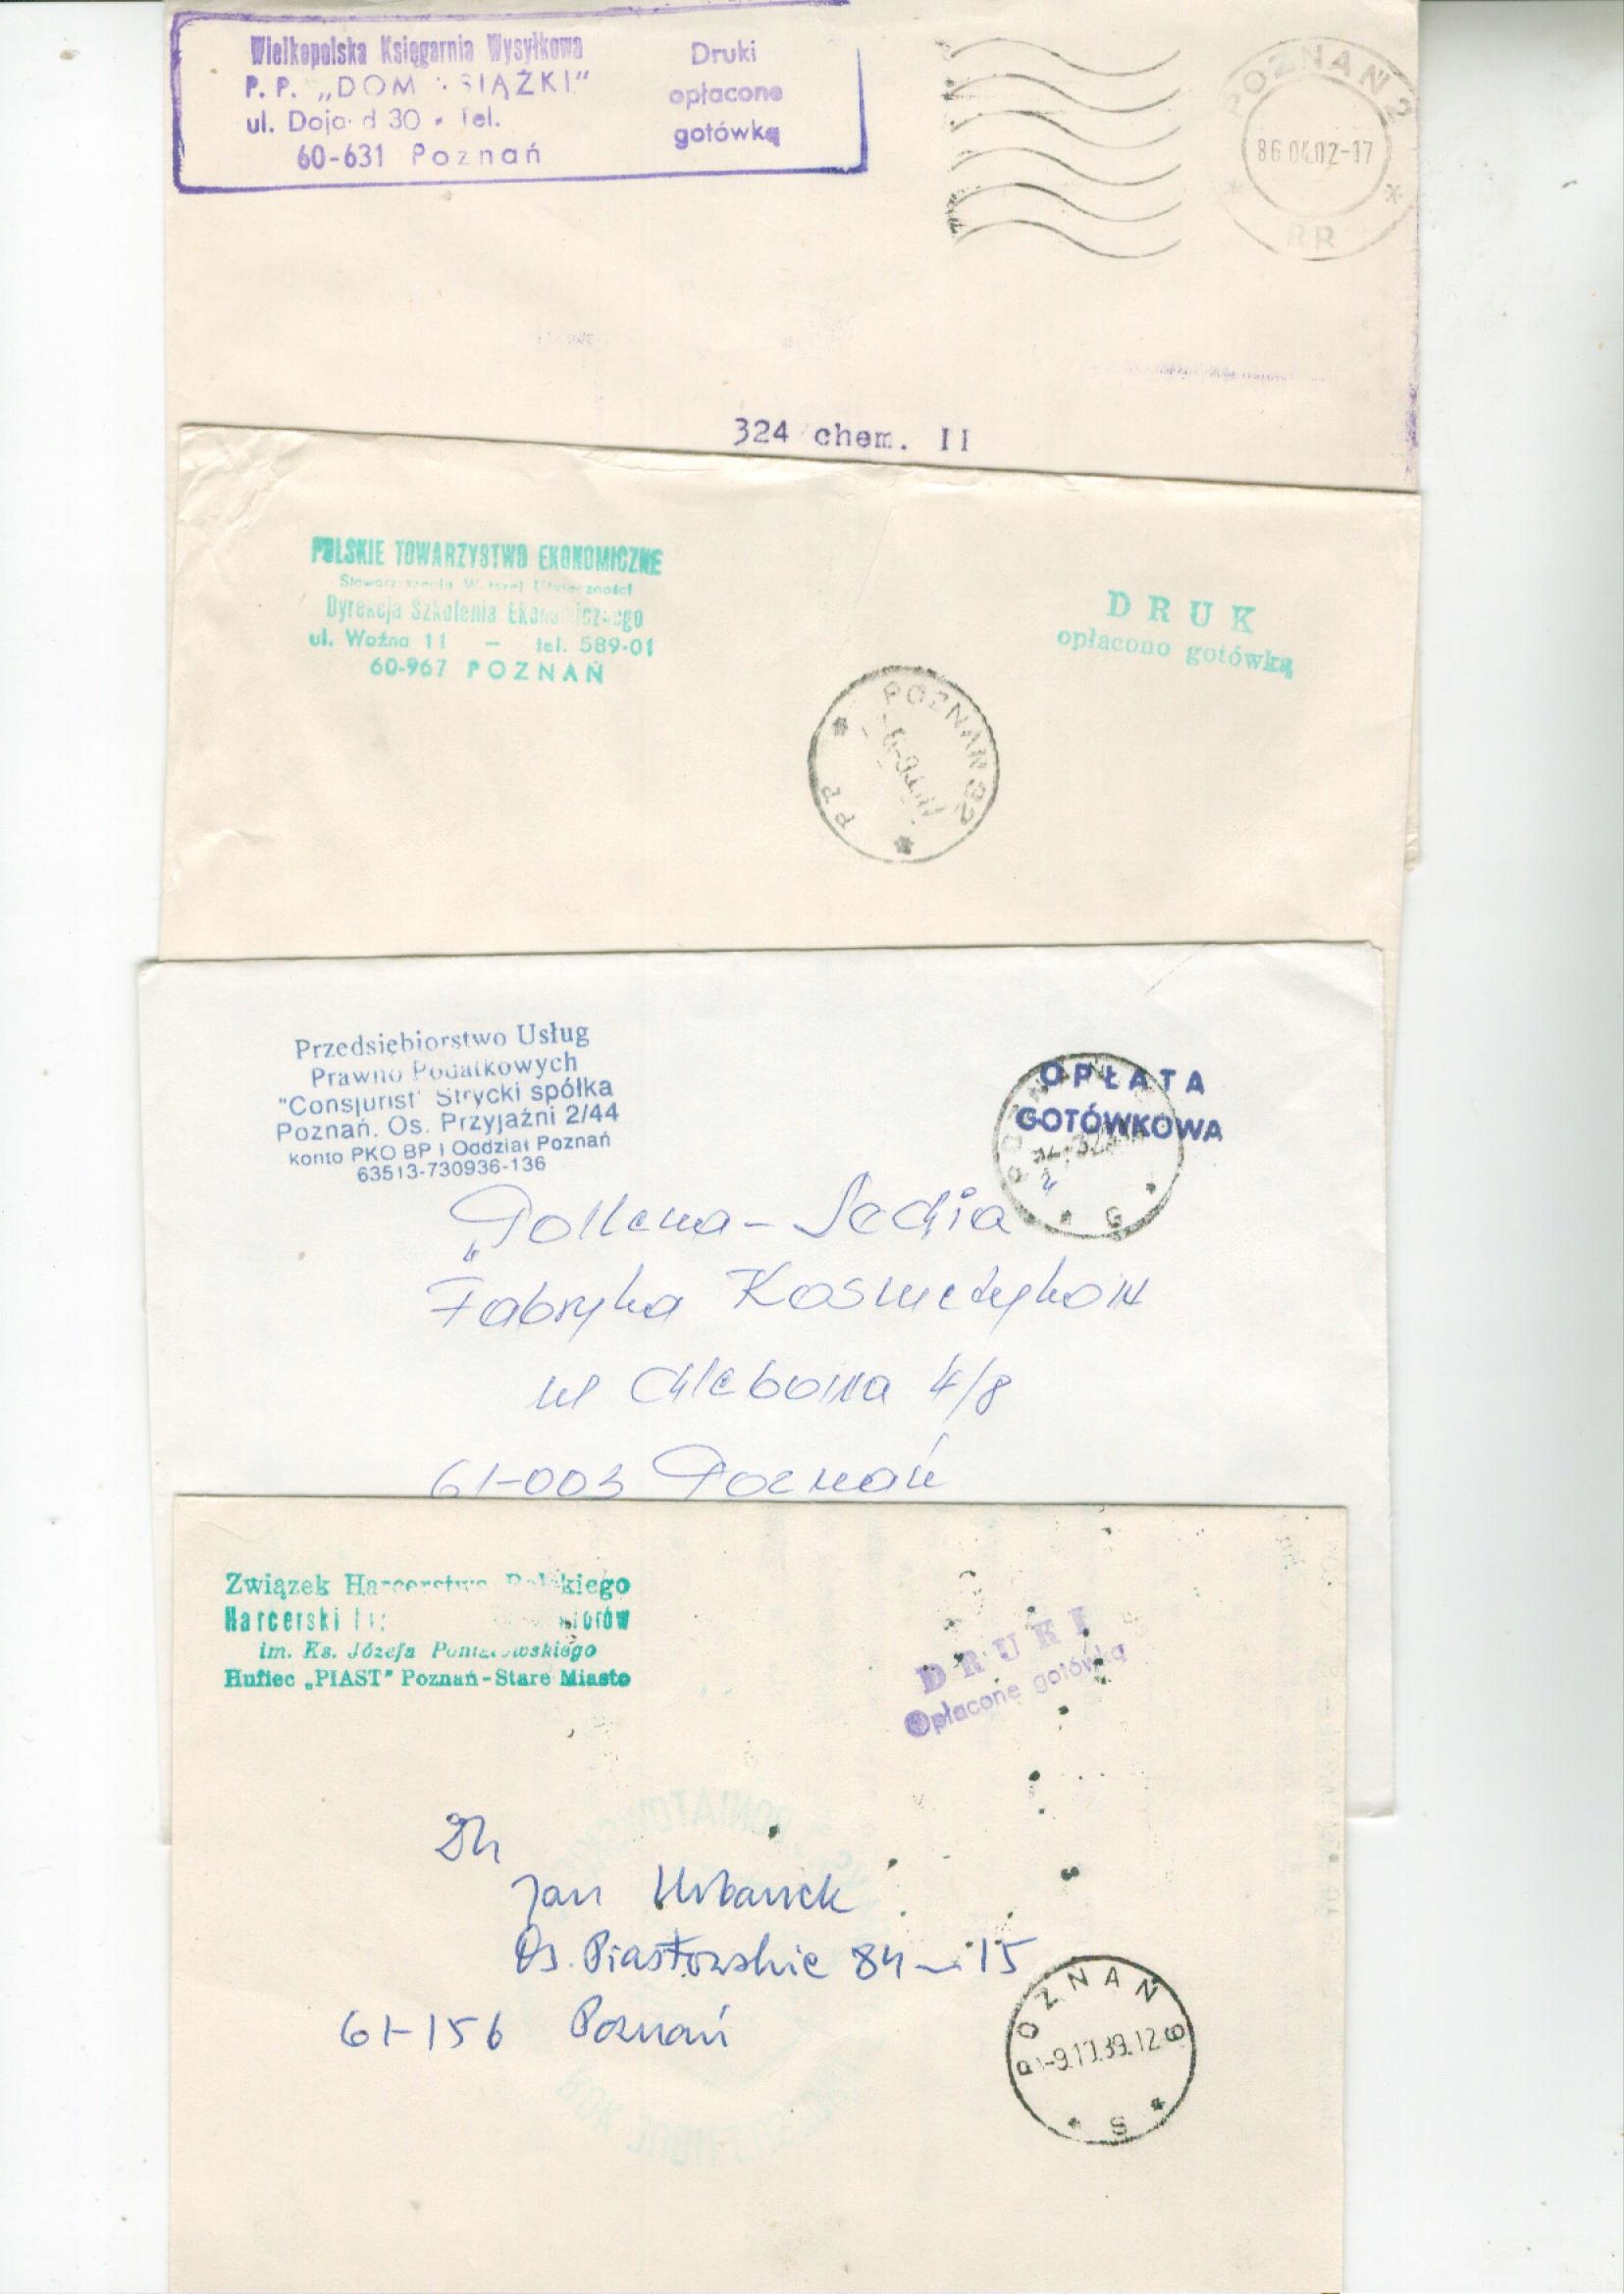 Wielkopolska Księgarnia Wysyłkowa
P. P. „DOM SIĄŻKI"
ul. 30 Tel.
60-631 Poznań
Druki
opłacone
gotówką
POZNAŃ 2
86.04.02-17
RR
324 chem. II
POLSKIE TOWARZYSTWO EKONOMICZNE
Dyrekcja Szkolenia
ul. Woźna 11 – tel. 589-01
60-967 POZNAŃ
DRUK
opłacono gotówką
POZNAŃ
PP
Przedsiębiorstwo Usług
Prawno Podatkowych
"Consjurist" Strycki spółka
Poznań. Os. Przyjaźni 2/44
Konto PKO BP I Oddział Poznań
63513-730936-136
OPŁATA
GOTÓWKOWA
G
„Pollena – Lechia
Fabryka Kosmetyków
ul Chlebowa 4/8
61-003 Poznań
Związek Harcerstwa Polskiego
Harcerski
im. Ks. Józefa Poniatowskiego
Hufiec „PIAST" Poznań-Stare Miasto
DRUKI
Opłacone gotówką
Dh
Jan Urbanek
Os. Piastowskie 84 – 15
61-156 Poznań
POZNAŃ 9
-9.10.89.12
S